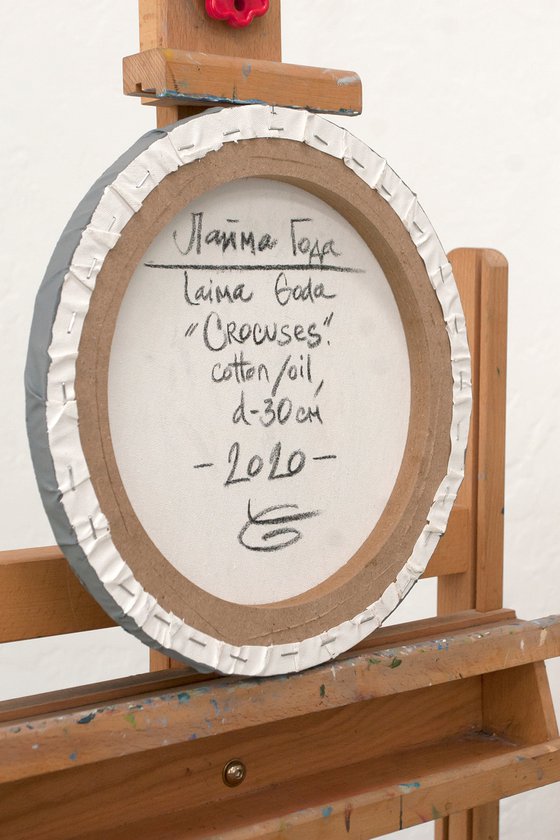 Лайма Года
Laima Goda
"Crocuses".
cotton/oil,
d-30см
-2020-